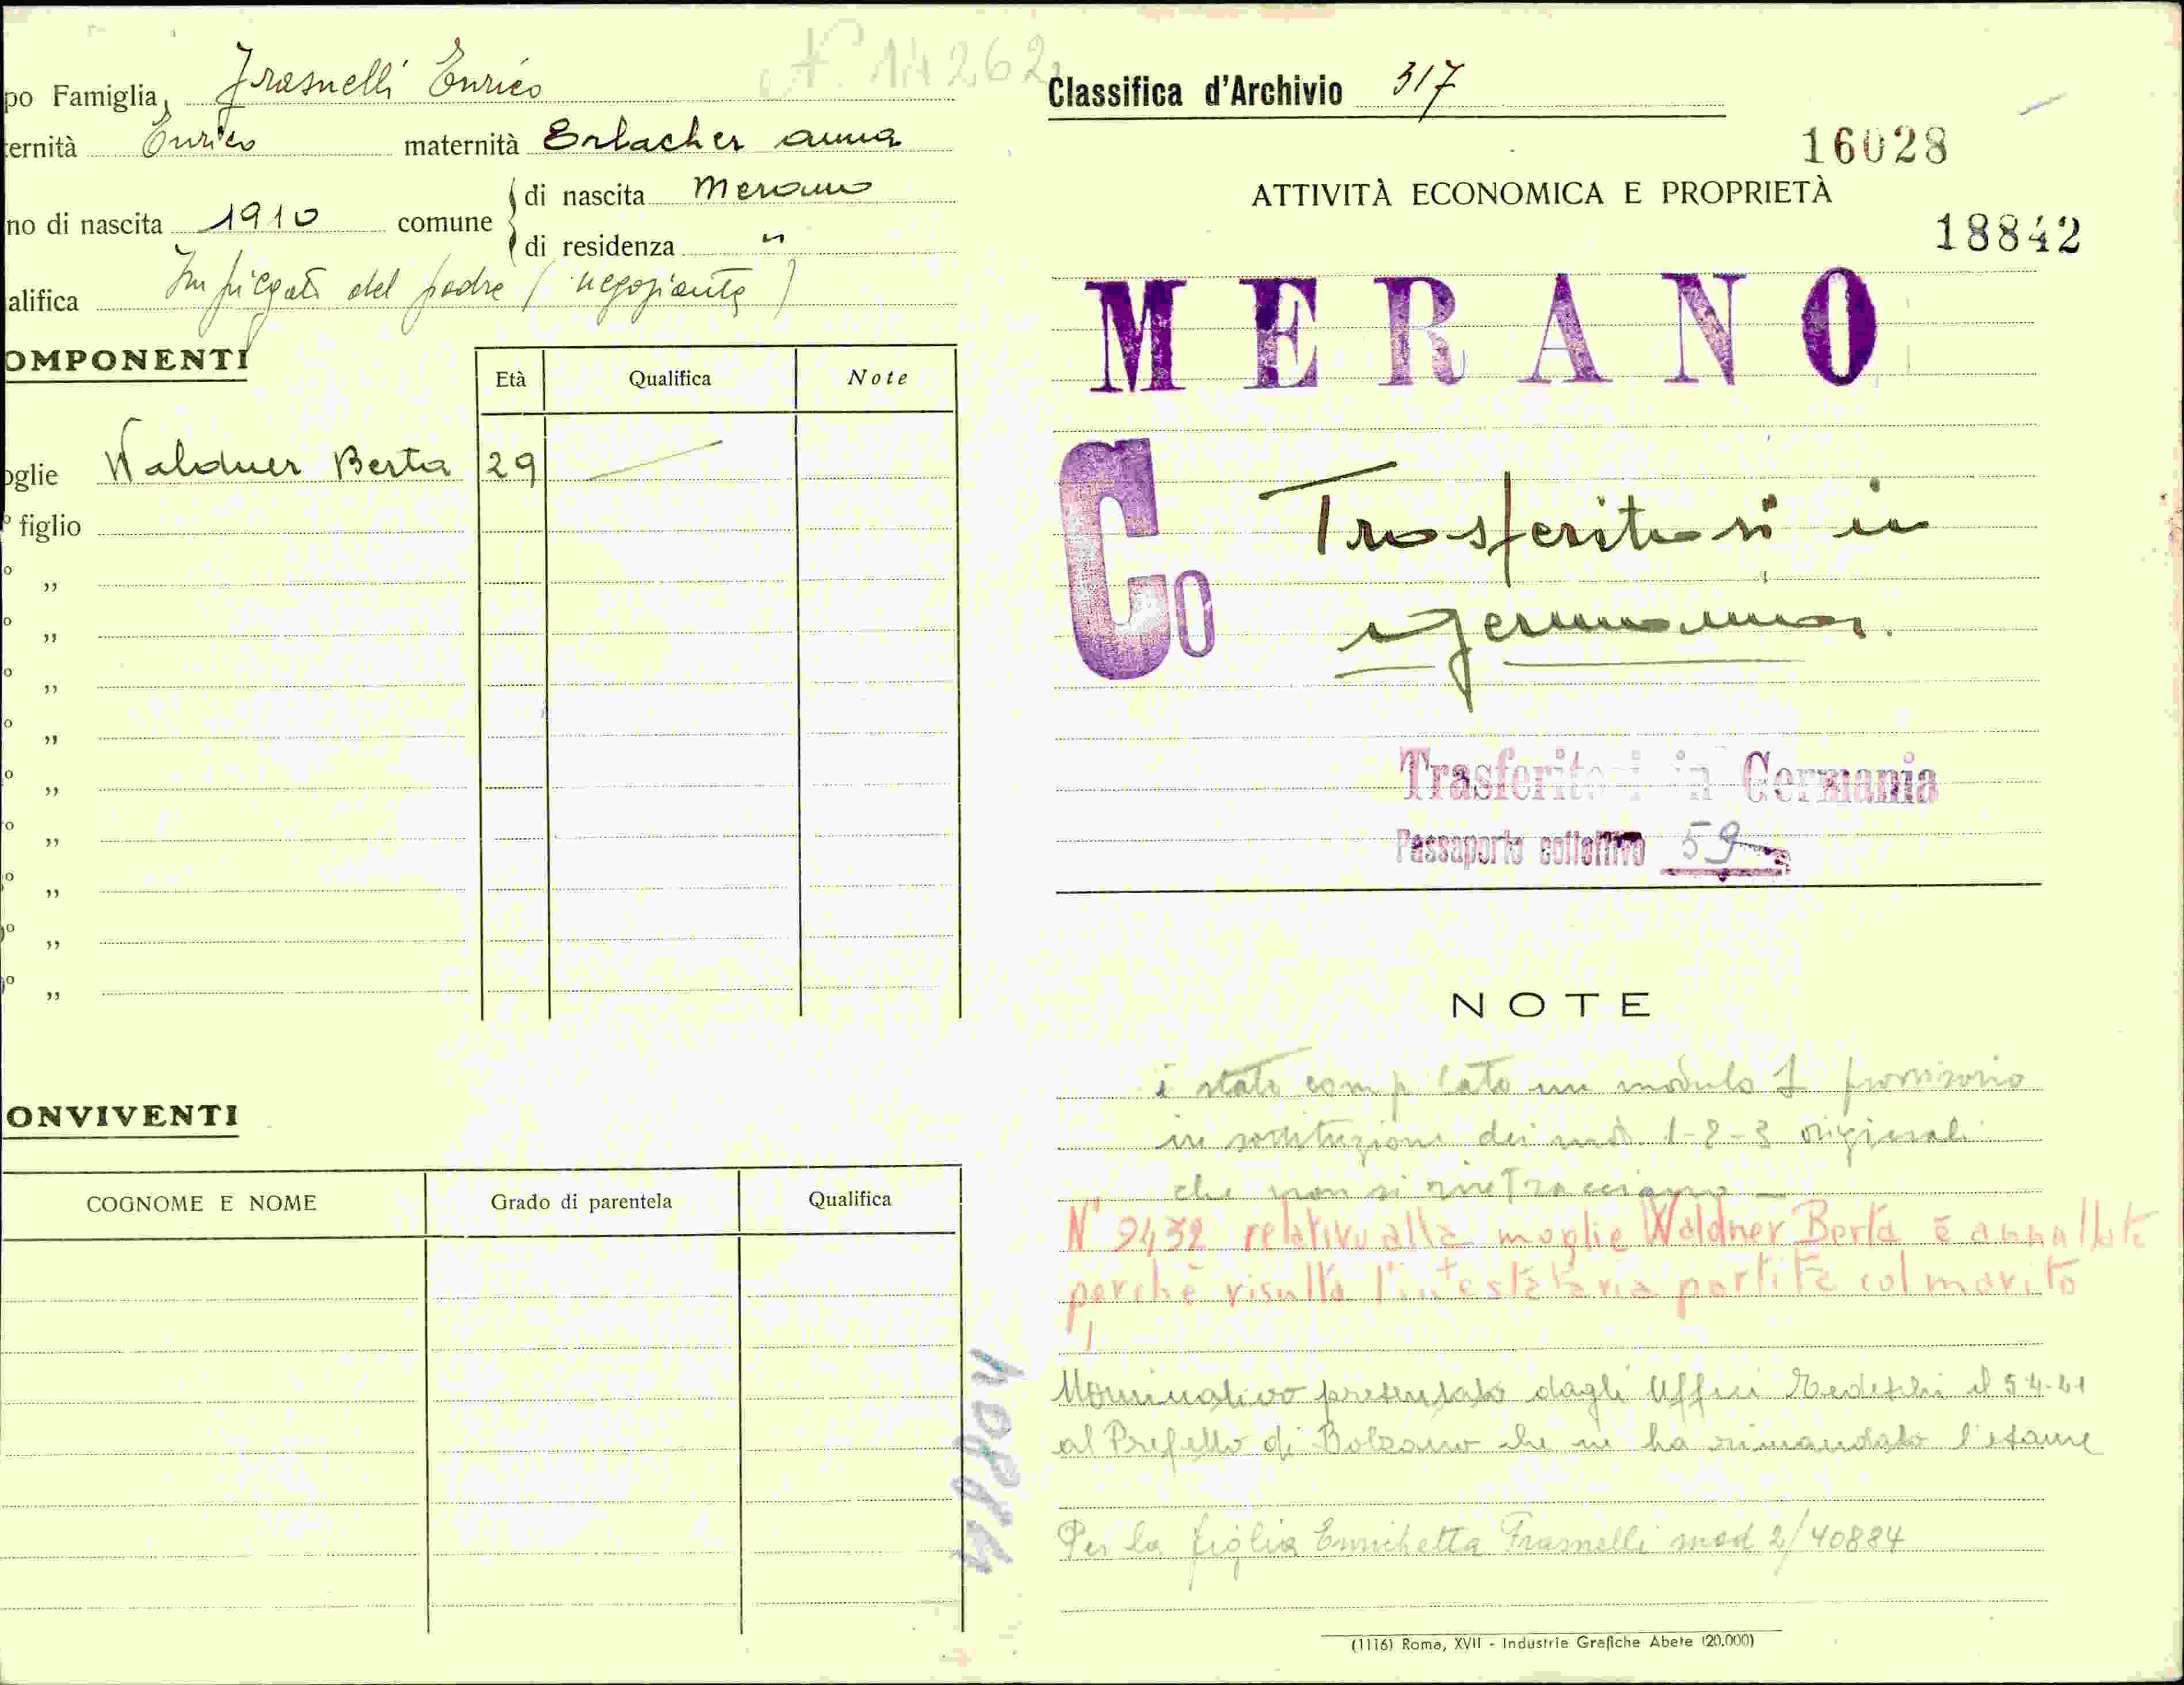 N. 14262
po Famiglia, Frasnelli Enrico
ternità Enrico maternità Erlacher Anna
no di nascita 1910 comune di nascita Merano
di residenza "
alifica Impiegato del padre (negoziante)
OMPONENTI
Età Qualifica Note
oglie Waldner Berta 29
º figlio
º „
º „
º „
º „
º „
º „
º „
º „
º „
ONVIVENTI
COGNOME E NOME Grado di parentela Qualifica
Classifica d'Archivio 317
16028
ATTIVITÀ ECONOMICA E PROPRIETÀ
18842
MERANO
Co
Trasferitosi in
Germania.
Trasferitosi in Germania
Passaporto collettivo 59
NOTE
È stato compilato un modulo 1 provvisorio
in sostituzione dei mod. 1-2-3 originali
che non si rintracciano —
N° 9432 relativo alla moglie Waldner Berta è annullato
perchè risulta l'intestataria partita col marito
Nominativo presentato dagli Uffici Tedeschi il 5-4-41
al Prefetto di Bolzano che ne ha rimandato l'esame
Per la figlia Enrichetta Frasnelli mod 2/40884
(1116) Roma, XVII - Industrie Grafiche Abete (20.000)